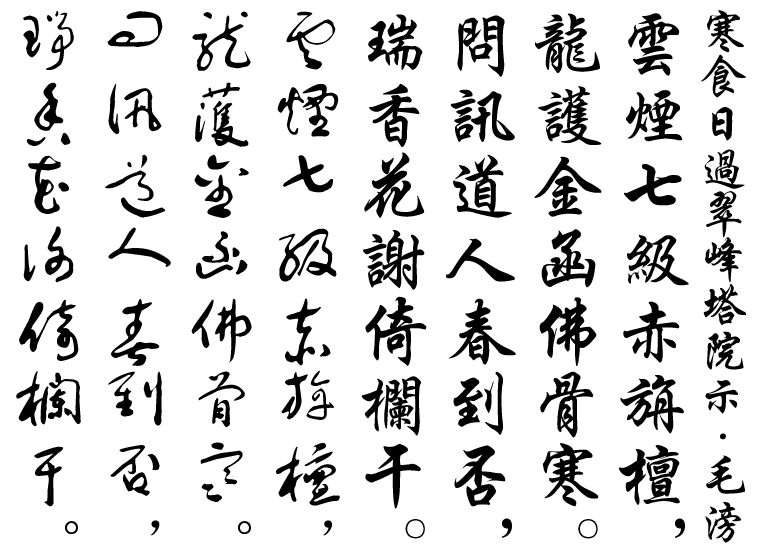 寒食日過翠峰塔院示·毛滂
雲煙七級赤旃檀，
龍護金函佛骨寒。
問訊道人春到否，
瑞香花謝倚欄干。
雲煙七級赤旃檀，
龍護金函佛骨寒。
問訊道人春到否，
瑞香花謝倚欄干。